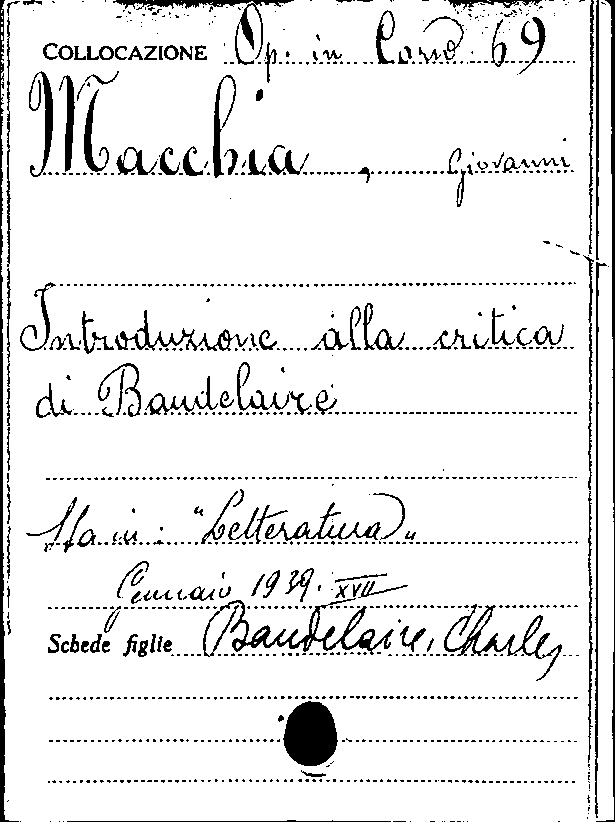 COLLOCAZIONE Op. in Corso 69
Macchia, Giovanni
Introduzione alla critica
di Baudelaire
Sta in: "Letteratura"
Gennaio 1939. XVII
Schede figlie Baudelaire, Charles